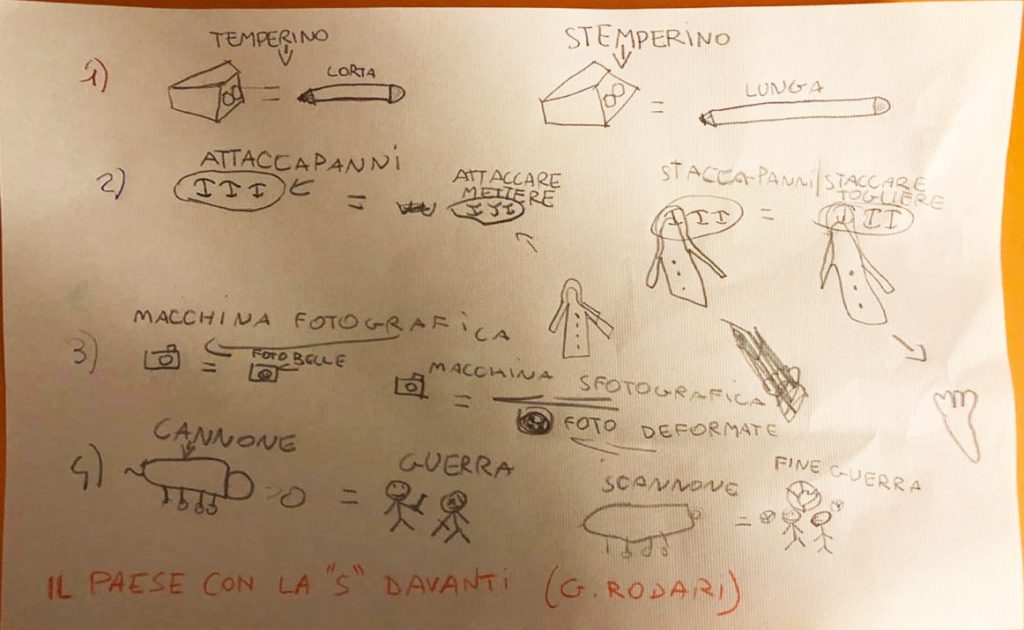 1) TEMPERINO
CORTA
STEMPERINO
LUNGA
2) ATTACCAPANNI
ATTACCARE
METTERE
STACCA-PANNI/STACCARE
TOGLIERE
3) MACCHINA FOTOGRAFICA
FOTO BELLE
MACCHINA SFOTOGRAFICA
FOTO DEFORMATE
4) CANNONE
GUERRA
SCANNONE
FINE GUERRA
IL PAESE CON LA "S" DAVANTI (G. RODARI)